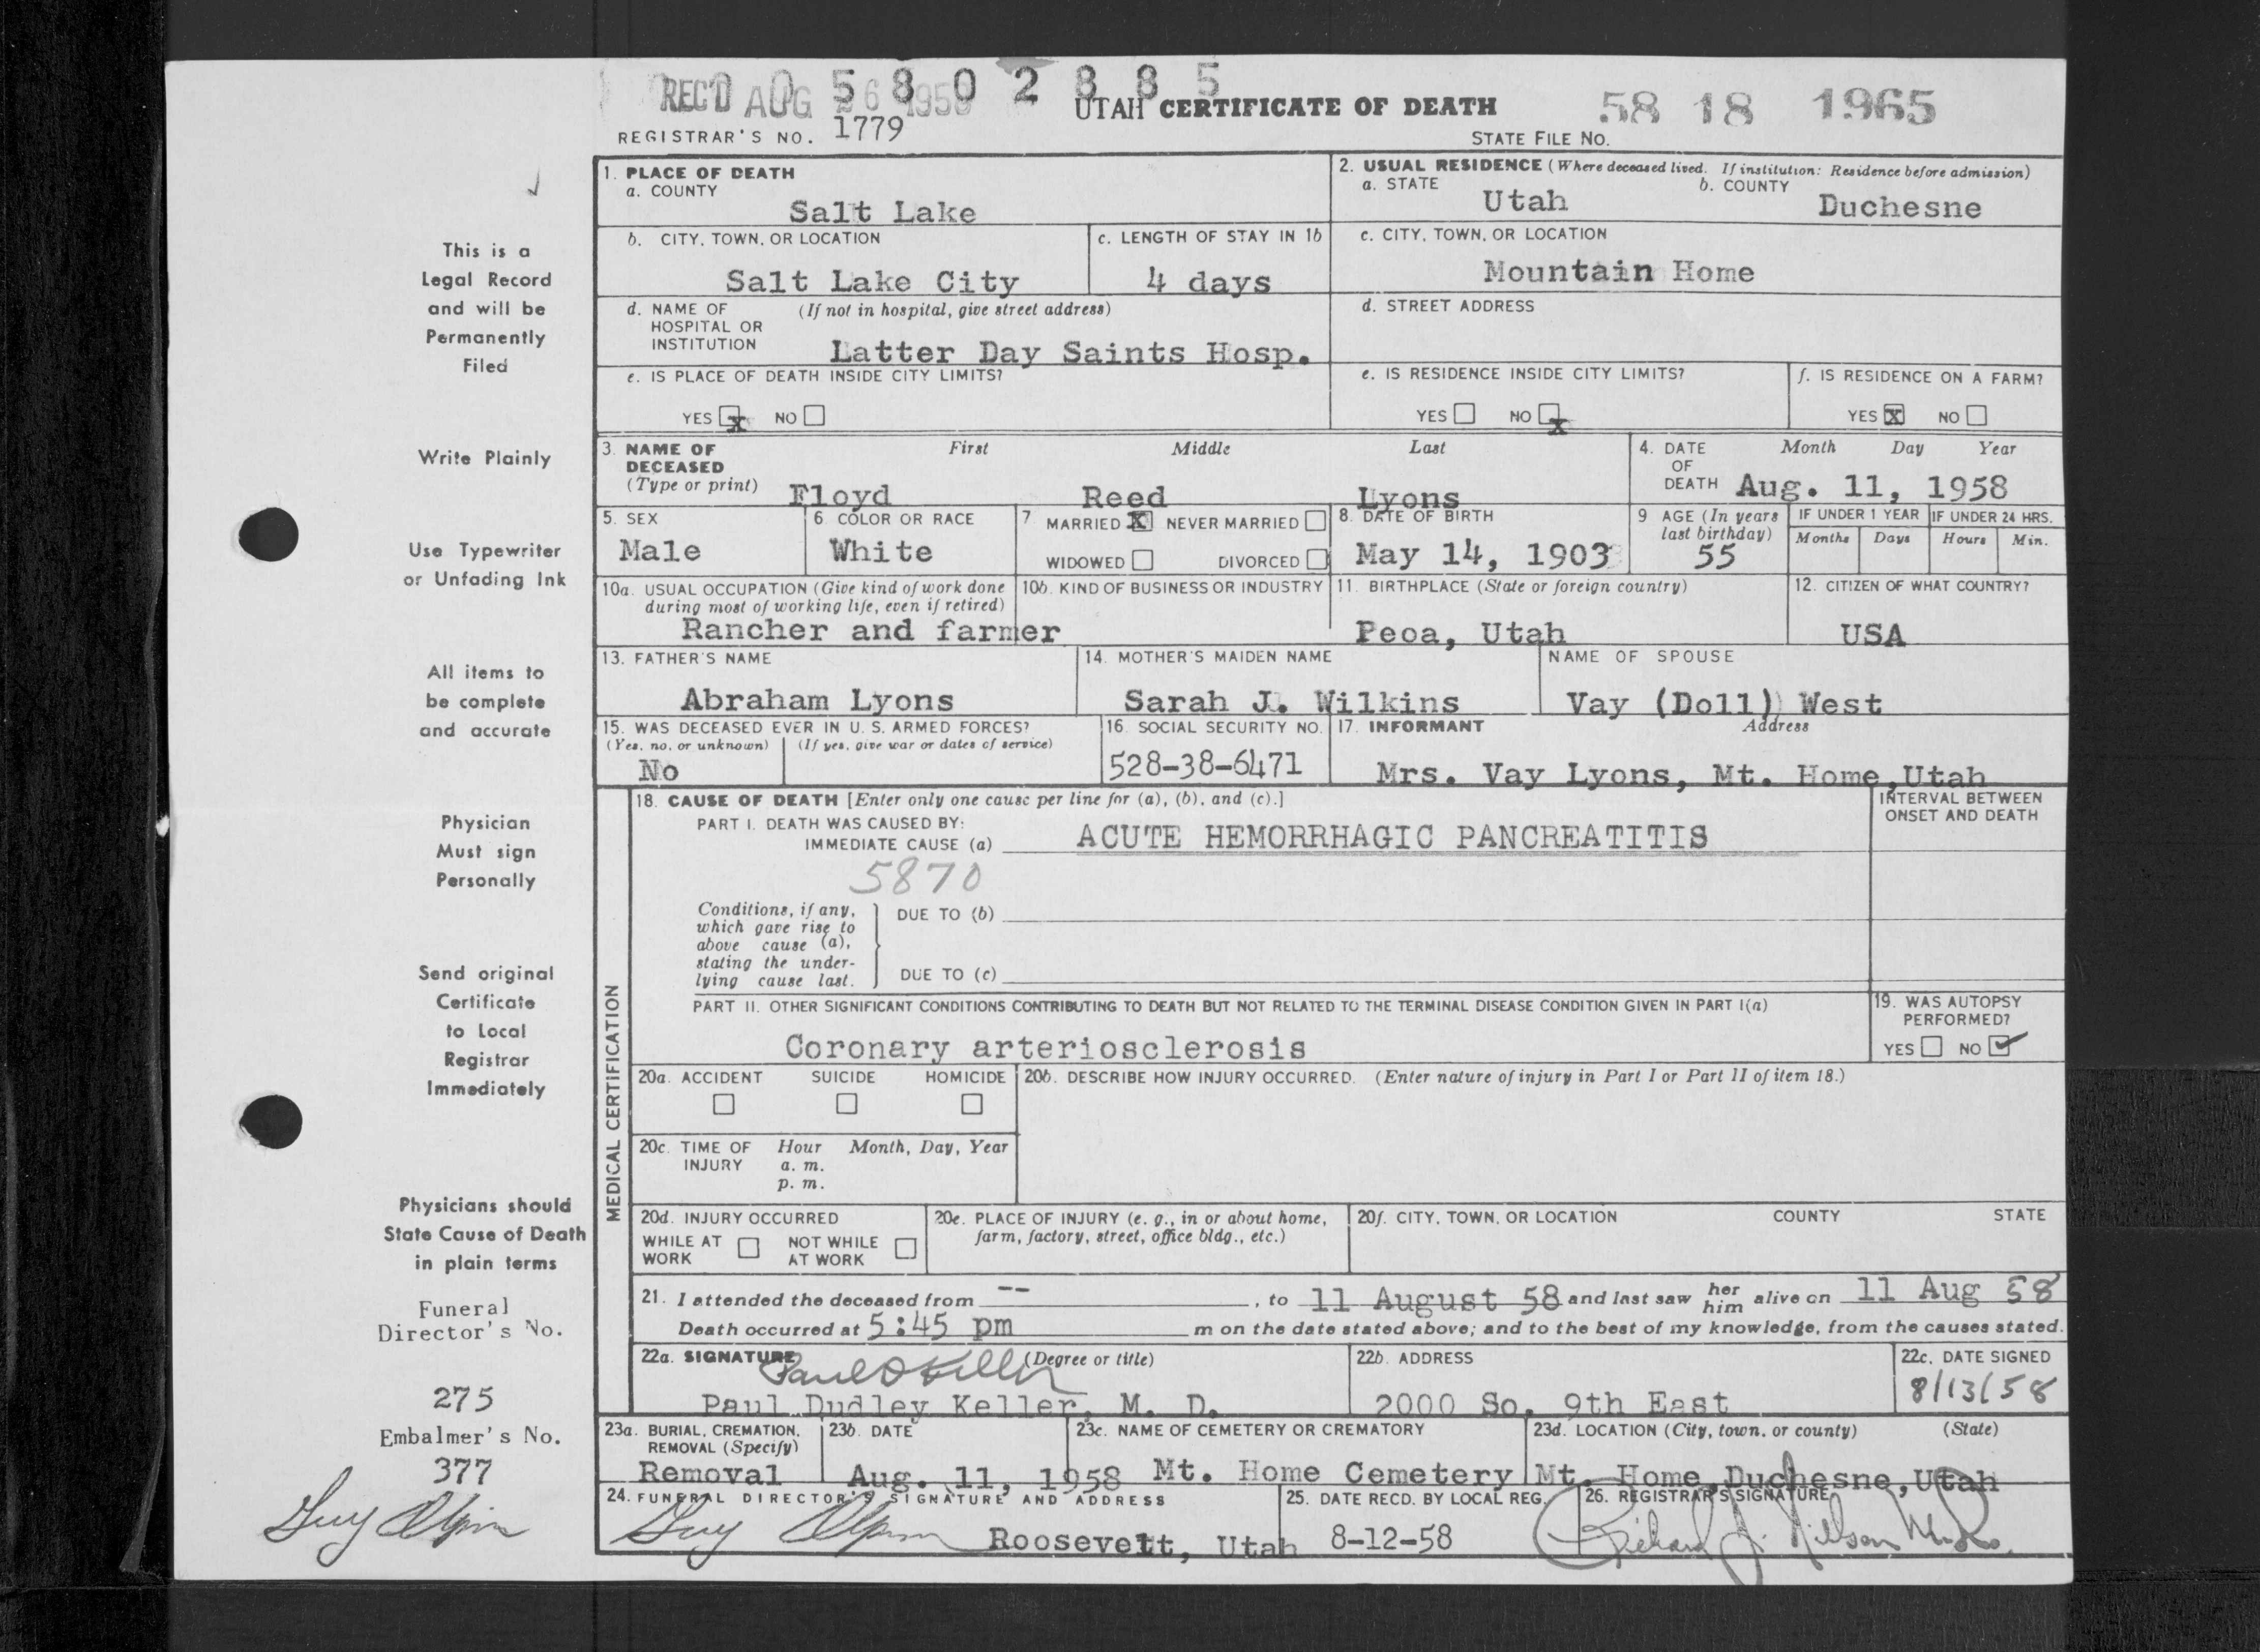 REC'D AUG 26 1958
0 5 8 0 2 8 8 5
UTAH CERTIFICATE OF DEATH
58 18 1965
REGISTRAR'S NO. 1779
STATE FILE NO.
1. PLACE OF DEATH
a. COUNTY
Salt Lake
2. USUAL RESIDENCE (Where deceased lived. If institution: Residence before admission)
a. STATE
Utah
b. COUNTY
Duchesne
b. CITY, TOWN, OR LOCATION
Salt Lake City
c. LENGTH OF STAY IN 1b
4 days
c. CITY, TOWN, OR LOCATION
Mountain Home
d. NAME OF HOSPITAL OR INSTITUTION
(If not in hospital, give street address)
Latter Day Saints Hosp.
d. STREET ADDRESS
e. IS PLACE OF DEATH INSIDE CITY LIMITS?
YES X NO
e. IS RESIDENCE INSIDE CITY LIMITS?
YES NO X
f. IS RESIDENCE ON A FARM?
YES X NO
3. NAME OF DECEASED (Type or print)
First Middle Last
Floyd Reed Lyons
4. DATE OF DEATH
Month Day Year
Aug. 11, 1958
5. SEX
Male
6. COLOR OR RACE
White
7. MARRIED X NEVER MARRIED
WIDOWED DIVORCED
8. DATE OF BIRTH
May 14, 1903
9 AGE (In years last birthday)
55
IF UNDER 1 YEAR
Months Days
IF UNDER 24 HRS.
Hours Min.
10a. USUAL OCCUPATION (Give kind of work done during most of working life, even if retired)
Rancher and farmer
10b. KIND OF BUSINESS OR INDUSTRY
11. BIRTHPLACE (State or foreign country)
Peoa, Utah
12. CITIZEN OF WHAT COUNTRY?
USA
13. FATHER'S NAME
Abraham Lyons
14. MOTHER'S MAIDEN NAME
Sarah J. Wilkins
NAME OF SPOUSE
Vay (Doll) West
15. WAS DECEASED EVER IN U. S. ARMED FORCES?
(Yes, no, or unknown) (If yes, give war or dates of service)
No
16. SOCIAL SECURITY NO.
528-38-6471
17. INFORMANT Address
Mrs. Vay Lyons, Mt. Home, Utah
MEDICAL CERTIFICATION
18. CAUSE OF DEATH [Enter only one cause per line for (a), (b), and (c).]
PART I. DEATH WAS CAUSED BY:
IMMEDIATE CAUSE (a) ACUTE HEMORRHAGIC PANCREATITIS
5870
INTERVAL BETWEEN ONSET AND DEATH
Conditions, if any, which gave rise to above cause (a), stating the underlying cause last.
DUE TO (b)
DUE TO (c)
PART II. OTHER SIGNIFICANT CONDITIONS CONTRIBUTING TO DEATH BUT NOT RELATED TO THE TERMINAL DISEASE CONDITION GIVEN IN PART I(a)
Coronary arteriosclerosis
19. WAS AUTOPSY PERFORMED?
YES NO ✓
20a. ACCIDENT SUICIDE HOMICIDE
20b. DESCRIBE HOW INJURY OCCURRED. (Enter nature of injury in Part I or Part II of item 18.)
20c. TIME OF INJURY
Hour Month, Day, Year
a. m.
p. m.
20d. INJURY OCCURRED
WHILE AT WORK NOT WHILE AT WORK
20e. PLACE OF INJURY (e. g., in or about home, farm, factory, street, office bldg., etc.)
20f. CITY, TOWN, OR LOCATION COUNTY STATE
21. I attended the deceased from -- , to 11 August 58 and last saw her him alive on 11 Aug 58
Death occurred at 5:45 pm m on the date stated above; and to the best of my knowledge, from the causes stated.
22a. SIGNATURE (Degree or title)
Paul D Keller
Paul Dudley Keller, M. D.
22b. ADDRESS
2000 So. 9th East
22c. DATE SIGNED
8/13/58
23a. BURIAL, CREMATION, REMOVAL (Specify)
Removal
23b. DATE
Aug. 11, 1958
23c. NAME OF CEMETERY OR CREMATORY
Mt. Home Cemetery
23d. LOCATION (City, town, or county) (State)
Mt. Home, Duchesne, Utah
24. FUNERAL DIRECTOR'S SIGNATURE AND ADDRESS
Roosevelt, Utah
25. DATE RECD. BY LOCAL REG.
8-12-58
26. REGISTRAR'S SIGNATURE
Richard J. Nilson
This is a
Legal Record
and will be
Permanently
Filed
Write Plainly
Use Typewriter
or Unfading Ink
All items to
be complete
and accurate
Physician
Must sign
Personally
Send original
Certificate
to Local
Registrar
Immediately
Physicians should
State Cause of Death
in plain terms
Funeral
Director's No.
275
Embalmer's No.
377